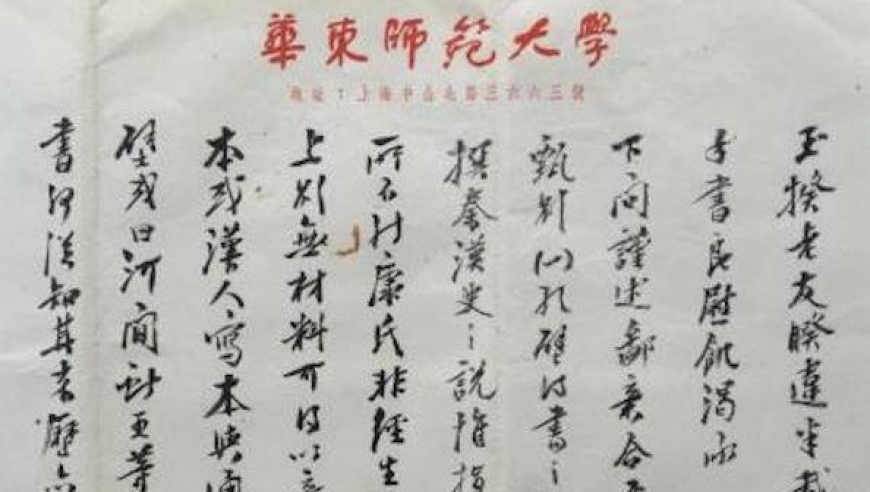 華東師範大學
地址：上海中山北路三六六三號
玉揆老友睽違半載
手書良慰飢渴承
下問謹述鄙意合
甄別以孔壁得書之
撰秦漢史之說惟指
所不討康氏非經生
上則無材料可得以意
本或漢人寫本與
壁或曰河間獻王等
書何從知其來歷